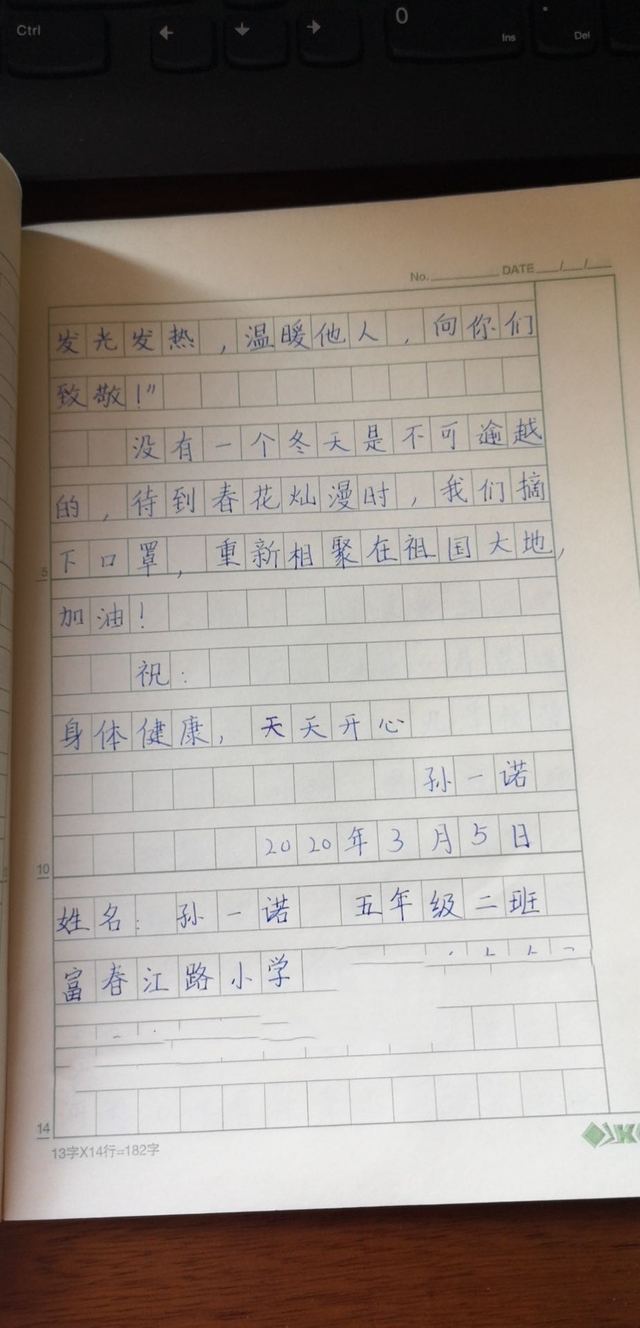 Ctrl
0
Ins
.
Del
No. DATE / /
发光发热，温暖他人，向你们
致敬！”
没有一个冬天是不可逾越
的，待到春花灿漫时，我们摘
5
下口罩，重新相聚在祖国大地，
加油！
祝：
身体健康，天天开心
孙一诺
10
2020年3月5日
姓名：孙一诺 五年级二班
富春江路小学
14
13字X14行=182字